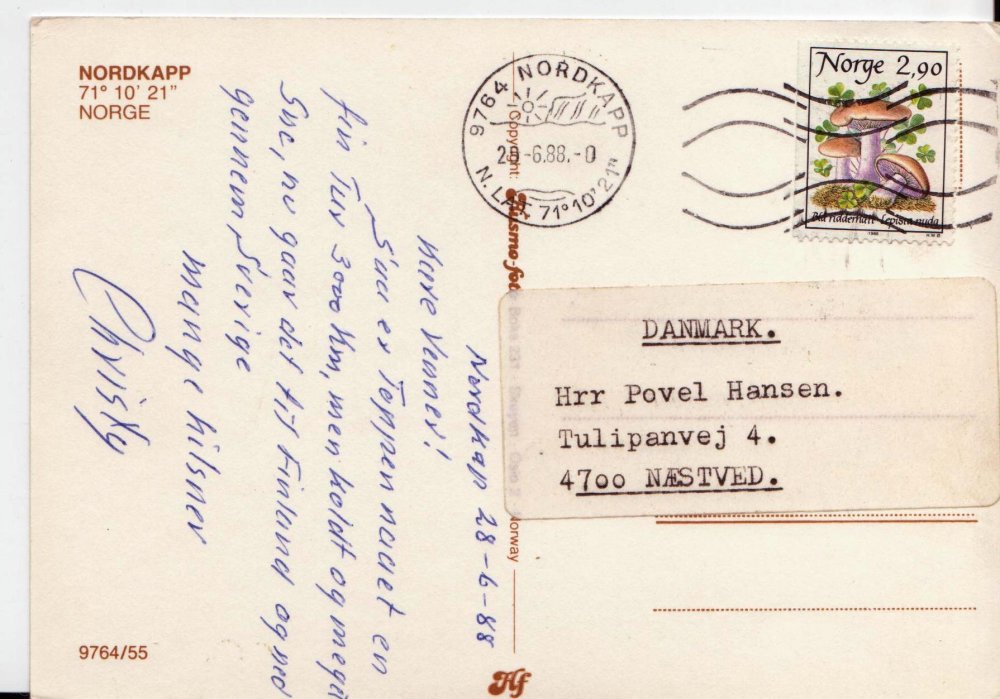 NORDKAPP
71° 10' 21"
NORGE
9764 NORDKAPP
-6.88.-0
N. LAT 71°10'21"
Norge 2,90
Blå ridderhatt Lepista nuda
1988
Nordkap 28-6-88
Kære Venner!
Saa er Toppen naaet en
fin Tur 3000 Km, men koldt og meget
Sne, nu gaar det til Finland og ned
gennem Sverige
Mange hilsner
Christy
DANMARK.
Hrr Povel Hansen.
Tulipanvej 4.
4700 NÆSTVED.
Copyright:
Norway
9764/55